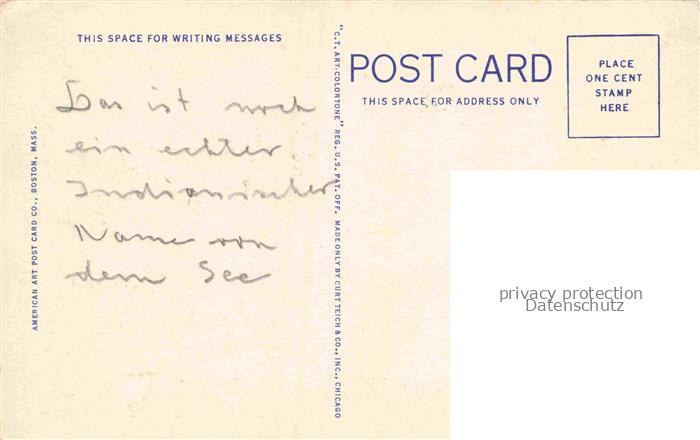 THIS SPACE FOR WRITING MESSAGES
Das ist noch
ein echter
Indianischer
Name von
dem See
AMERICAN ART POST CARD CO., BOSTON, MASS.
"C.T. ART-COLORTONE" REG. U.S. PAT. OFF. MADE ONLY BY CURT TEICH & CO., INC., CHICAGO
POST CARD
THIS SPACE FOR ADDRESS ONLY
PLACE
ONE CENT
STAMP
HERE
privacy protection
Datenschutz